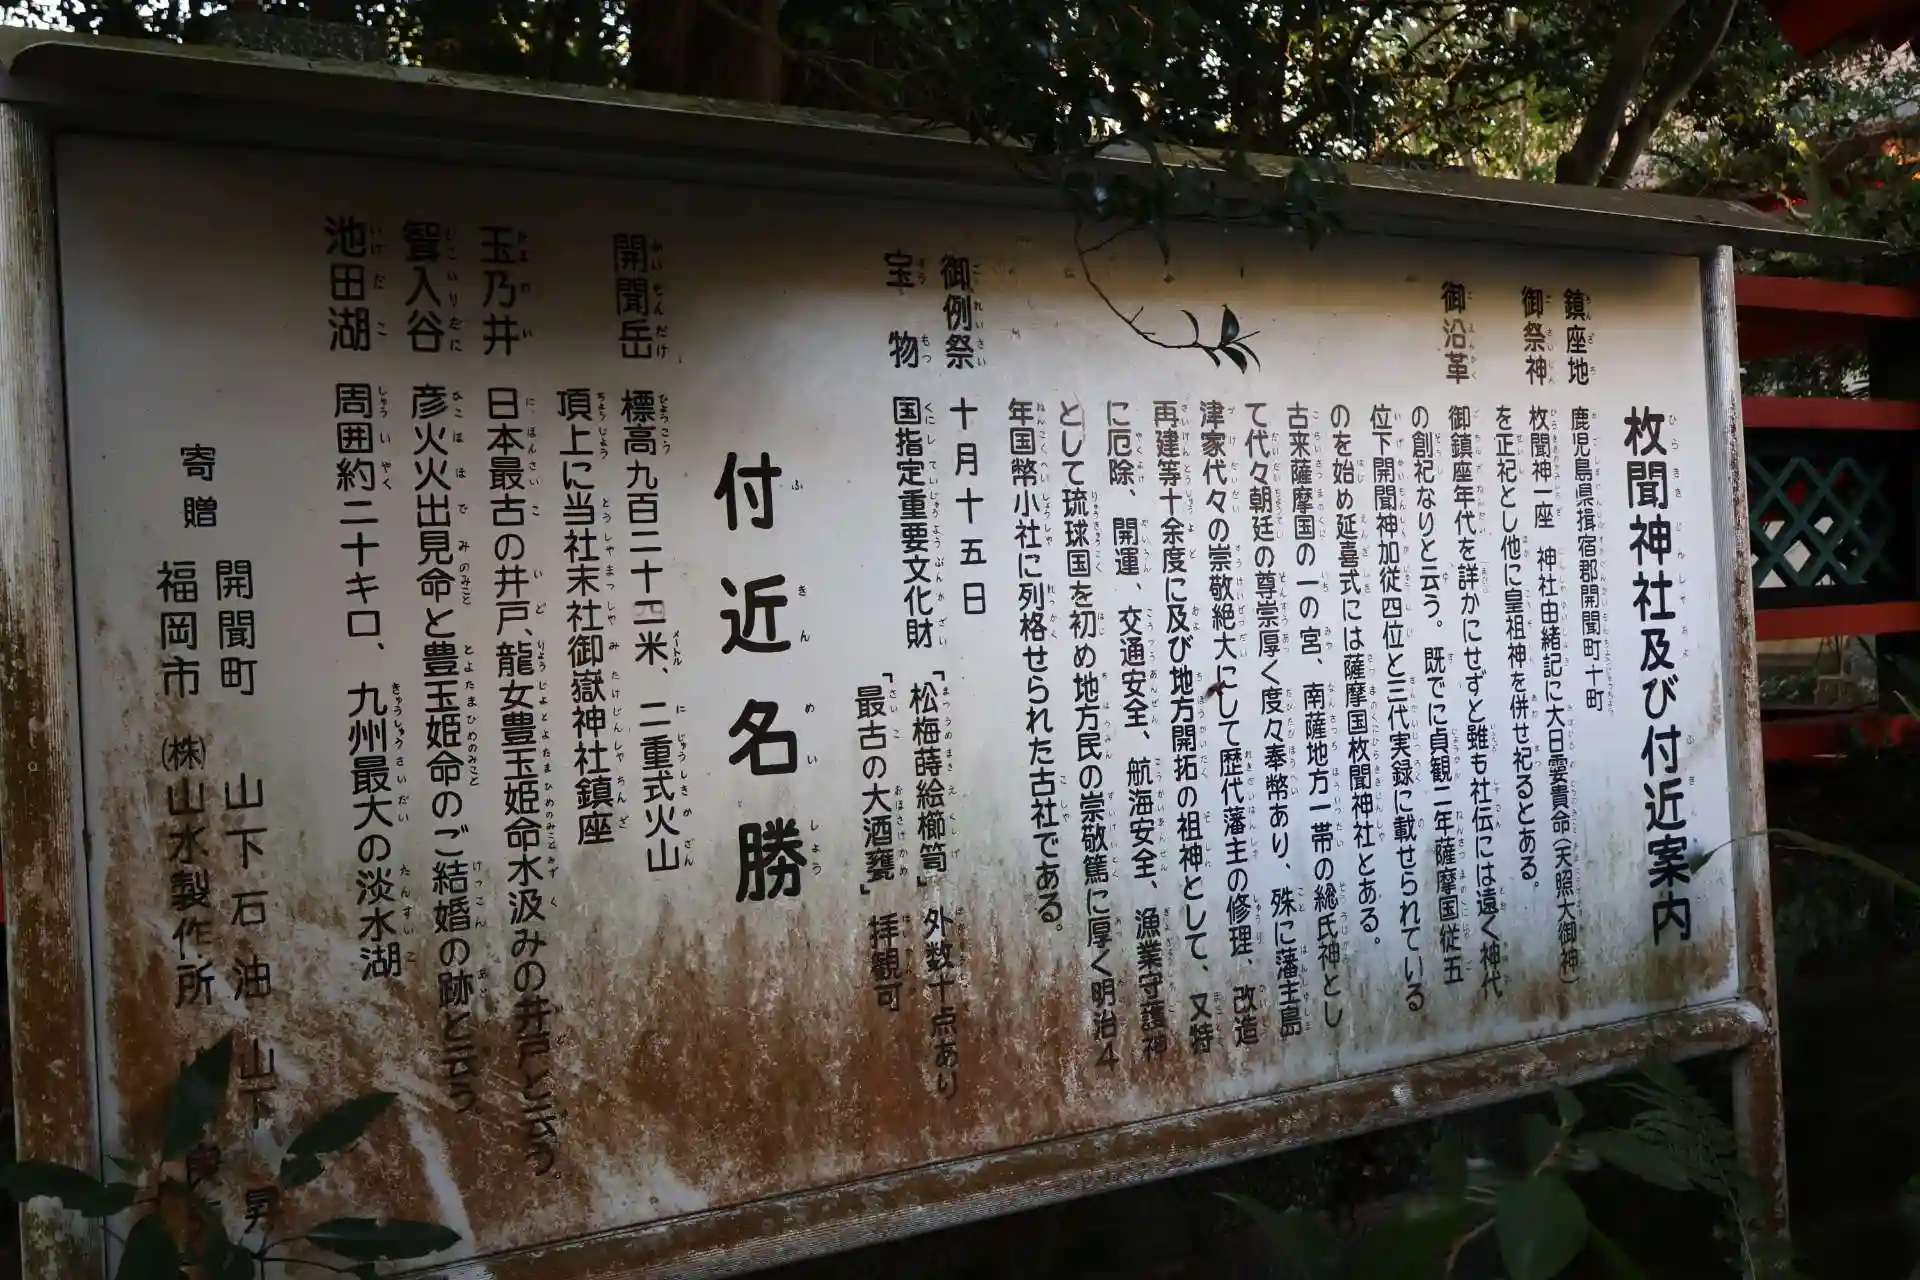 枚聞神社及び付近案内
鎮座地 鹿児島県揖宿郡開聞町十町
御祭神 枚聞神一座 神社由緒記に大日孁貴命(天照大御神)
を正祀とし他に皇祖神を併せ祀るとある。
御沿革 御鎮座年代を詳かにせずと雖も社伝には遠く神代
の創祀なりと云う。既でに貞観二年薩摩国従五
位下開聞神加従四位と三代実録に載せられている
のを始め延喜式には薩摩国枚聞神社とある。
古来薩摩国の一の宮、南薩地方一帯の総氏神とし
て代々朝廷の尊崇厚く度々奉幣あり、殊に藩主島
津家代々の崇敬絶大にして歴代藩主の修理、改造
再建等十余度に及び地方開拓の祖神として、又特
に厄除、開運、交通安全、航海安全、漁業守護神
として琉球国を初め地方民の崇敬篤に厚く明治4
年国幣小社に列格せられた古社である。
御例祭 十月十五日
宝物 国指定重要文化財 「松梅蒔絵櫛笥」外数十点あり
「最古の大酒甕」拝観可
付近名勝
開聞岳 標高九百二十四米、二重式火山
頂上に当社末社御嶽神社鎮座
玉乃井 日本最古の井戸、龍女豊玉姫命水汲みの井戸と云う。
聟入谷 彦火火出見命と豊玉姫命のご結婚の跡と云う
池田湖 周囲約二十キロ、九州最大の淡水湖
寄贈 開聞町 山下石油 山下 昇
福岡市 (株)山水製作所